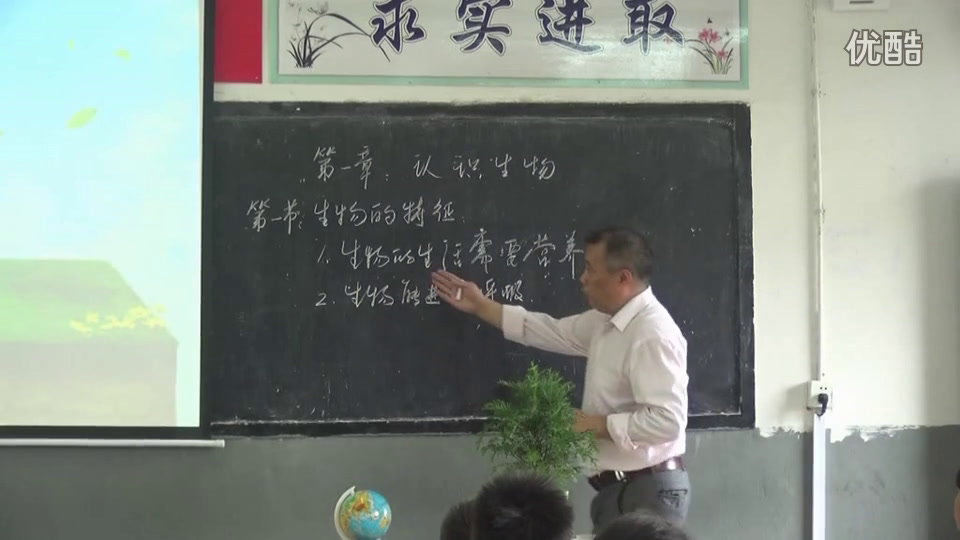 求实进取
优酷
第一章：认识生物
第一节：生物的特征
1. 生物的生活需要营养
2. 生物能进 呼吸.